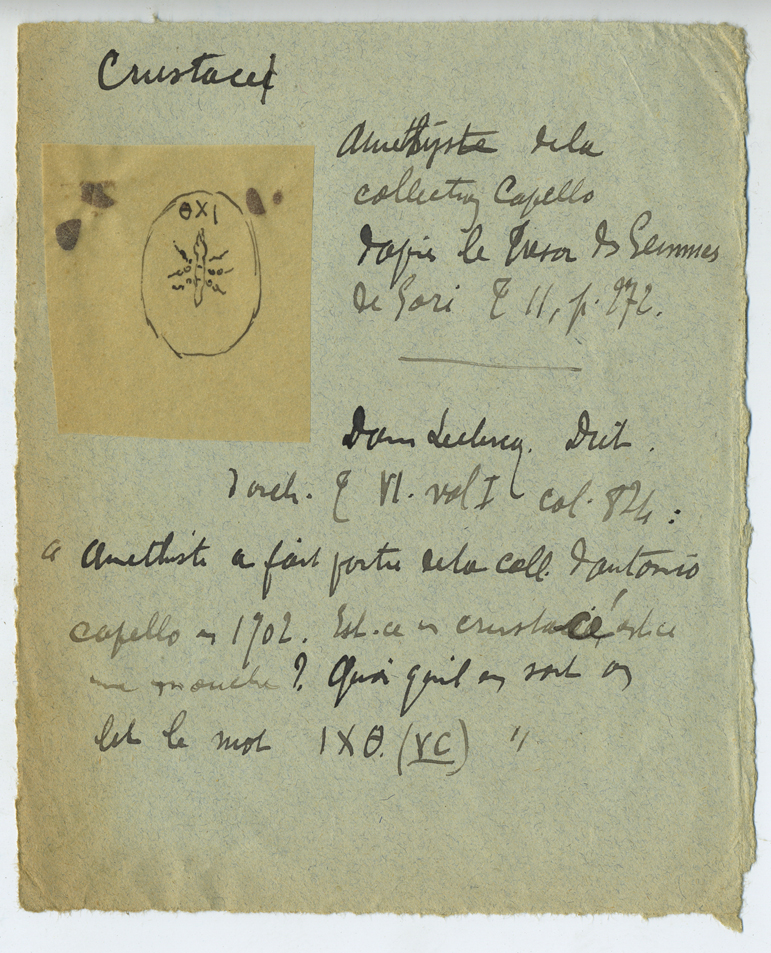 Crustacé
ΘXI
Amethyste dela
collection Capello
d'après le Tresor des Gemmes
de Gori T II, p. 272.
Dom Leclercq. Dict.
d'arch. T VI. vol I col. 824 :
"Amethiste a fait partie dela coll. d'antonio
capello en 1702. Est-ce un crustacé, est ce
une mouche ? Quoi qu'il en soit on
lit le mot IXΘ. (YC) "